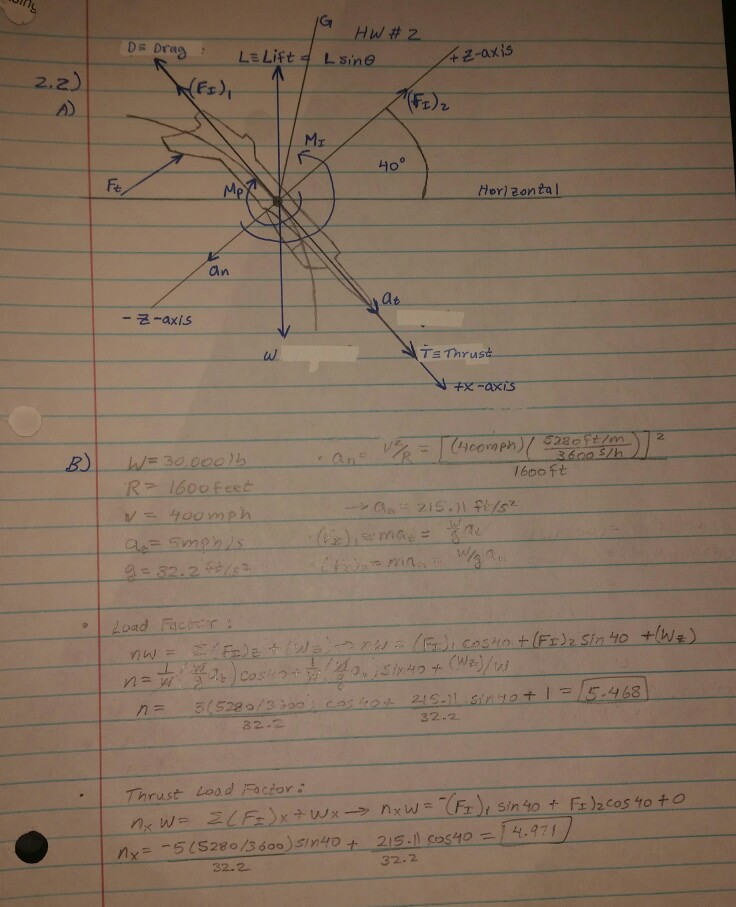 HW # 2
2.2)
A)
G
D≡ Drag
L≡Lift = L sinθ
+z-axis
(F_I)₁
(F_I)₂
M_I
40°
F_t
M_P
Horizontal
a_n
a_t
-z-axis
W
T≡Thrust
+x-axis
B)
W= 30,000 lb
R= 1600 feet
v = 400mph
a_t= 5mph/s
g= 32.2 ft/s²
• a_n= V²/R = [(400mph)(5280ft/m / 3600s/h)]² / 1600ft
→ a_n= 215.11 ft/s²
(F_I)₁ = ma_t = W/g a_t
(F_I)₂ = ma_n = W/g a_n
• Load Factor:
nW = Σ(F_I)z + (Wz) → nW = (F_I)₁ cos40 + (F_I)₂ sin 40 + (Wz)
n= 1/W (W/g a_t) cos40 + 1/W (W/g a_n) sin40 + (Wz)/W
n= 5(5280/3600)/32.2 cos40 + 215.11/32.2 sin40 + 1 = 5.468
• Thrust Load Factor:
n_x W= Σ(F_I)x + Wx → n_x W= -(F_I)₁ sin40 + F_I)₂ cos40 + 0
n_x= -5(5280/3600)sin40 / 32.2 + 215.11 cos40 / 32.2 = 4.971